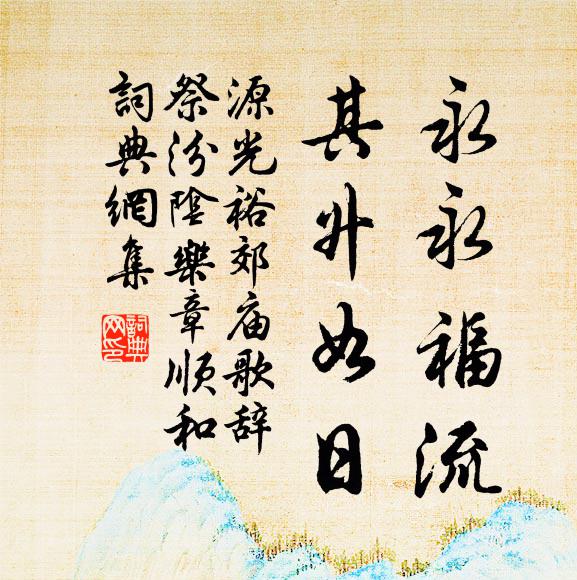 永永福流
其升如日
源光裕郊庙歌辞
祭汾陰樂章順和
詞典網集
詞典網印